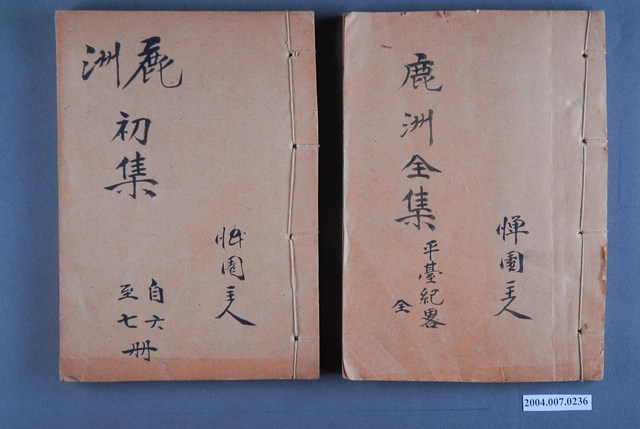 鹿洲
初集
自六
至七册
惲園主人
鹿洲全集
平臺紀畧
全
惲園主人
2004.007.0236